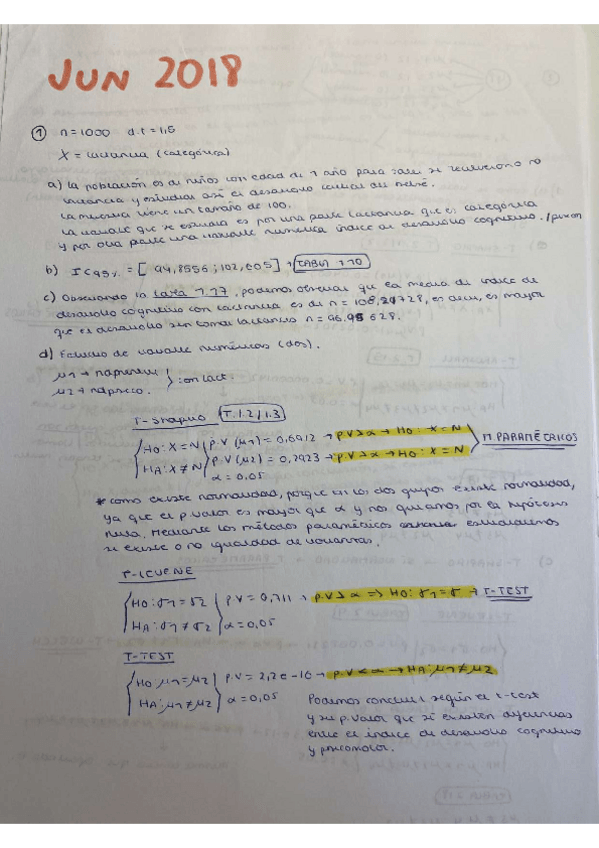 JUN 2018
① n=1000 d.t=1,5
X = lactancia (categórica)
a) La población es de niños con edad de 1 año para saber si recibieron o no
lactancia y estudiar así el desarrollo del bebé.
La muestra tiene un tamaño de 100.
La variable que se estudia es por una parte lactancia que es categórica
y por otra parte una variable numérica índice de desarrollo cognitivo. /psicom
b) IC95% = [94,8556 ; 102,605] → TABLA 1.10
c) Observando la tabla 1.17, podemos observar que la media de índice de
desarrollo cognitivo con lactancia es de n = 108,24728, es decir, es mayor
que el desarrollo sin tomar lactancia n = 96.95628.
d) Estudio de variable numéricas (dos).
μ1 →
μ2 → napsico. } con lact.
T-Shapiro T.1.2/1.3
H0: X = N P.V (μ1) = 0,6912 → P.V > α → H0: X = N
HA: X ≠ N P.V (μ2) = 0,2923 → P.V > α → H0: X = N
α = 0.05
M PARAMÉTRICOS
* como existe normalidad, porque en los dos grupos existe normalidad,
ya que el p valor es mayor que α y nos quedamos por la hipótesis
nula. Mediante los métodos paramétricos estudiaremos
si existe o no igualdad de varianzas.
T-LEVENE
H0: σ1 = σ2 P.V = 0,711 → P.V > α ⇒ H0: σ1 = σ → T-TEST
HA: σ1 ≠ σ2 α = 0,05
T-TEST
H0: μ1 = μ2 P.V = 2,2e-16 → P.V < α → HA: μ1 ≠ μ2
HA: μ1 ≠ μ2 α = 0,05
Podemos concluir según el t-test
y su p.valor que sí existen diferencias
entre el índice de desarrollo cognitivo
y psicomotor.